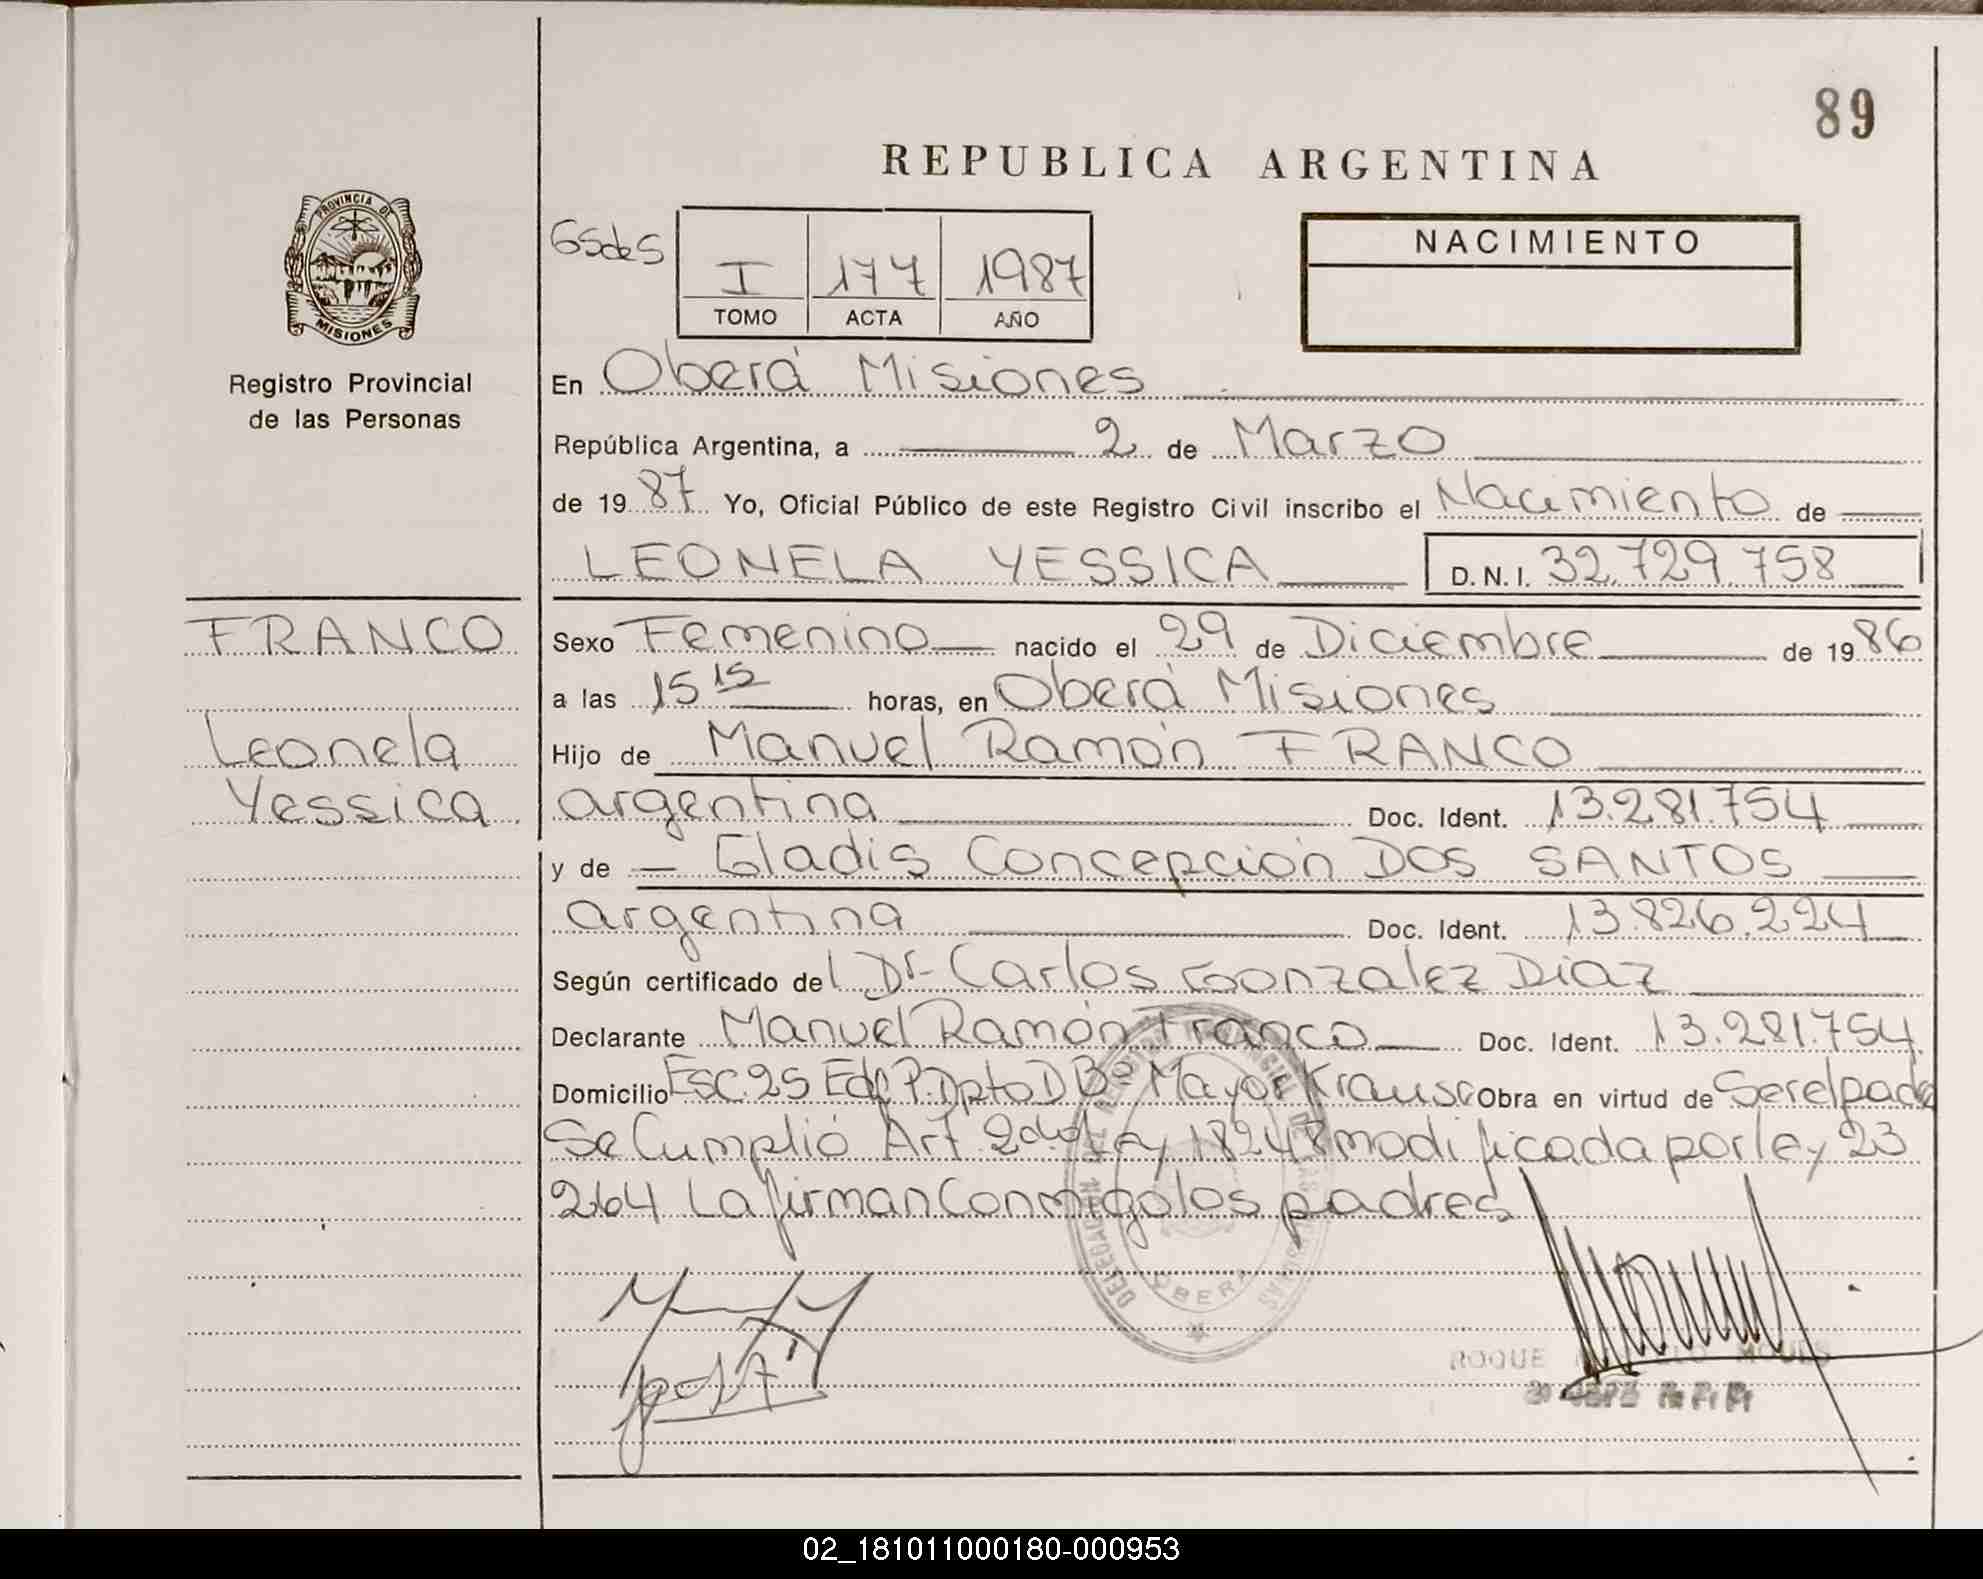 89
REPUBLICA ARGENTINA
PROVINCIA DE
MISIONES
Registro Provincial
de las Personas
I 177 1987
TOMO ACTA AÑO
NACIMIENTO
En Oberá Misiones
República Argentina, a 2 de Marzo
de 1987 Yo, Oficial Público de este Registro Civil inscribo el Nacimiento de
LEONELA YESSICA D.N.I. 32.729.758
FRANCO
Leonela
Yessica
Sexo Femenino nacido el 29 de Diciembre de 1986
a las 15 15 horas, en Oberá Misiones
Hijo de Manuel Ramón FRANCO
argentina Doc. Ident. 13.281.754
y de Gladis Concepción DOS SANTOS
argentina Doc. Ident. 13.826.224
Según certificado del Dr. Carlos Gonzalez Diaz
Declarante Manuel Ramón Franco Doc. Ident. 13.281.754
Domicilio Esc. 25 Edf P. Dpto D Bº Mayor Krause Obra en virtud de Ser el padre
Se Cumplió Art. 2do Ley 18248 modificada por ley 23
264 La firman Conmigo los padres
OBERA
ROQUE
02_181011000180-000953